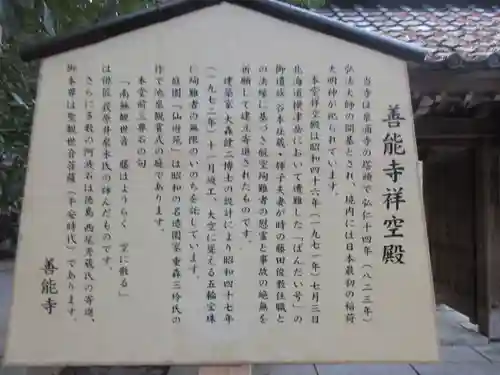 善能寺祥空殿
当寺は泉涌寺の塔頭で弘仁十四年（八二三年）
弘法大師の開基とされ、境内には日本最初の稲荷
大明神が祀られています。
本堂祥空殿は昭和四十六年（一九七一年）七月三日
北海道横津岳において遭難した「ばんだい号」の
御遺族谷本佳蔵・輝子夫妻が時の藤田俊教住職と
の法縁に基づき航空殉難者の慰霊と事故の絶無を
祈願して建立寄進されたものです。
建築家大森健二博士の設計により昭和四十七年
（一九七二年）十一月竣工、大空に聳える五輪宝珠
に殉難者の無限のいのちを託しています。
庭園『仙遊苑』は昭和の名造園家重森三玲氏の
作で池泉観賞式の名庭であります。
本堂前三尊石の句
「南無観世音　藤はようらく　空に散る」
は俳匠荻原井泉水氏の詠んだものです。
さらに多数の阿波石は徳島　西尾秀蔵氏の寄進、
御本尊は聖観世音菩薩（平安時代）であります。
善能寺